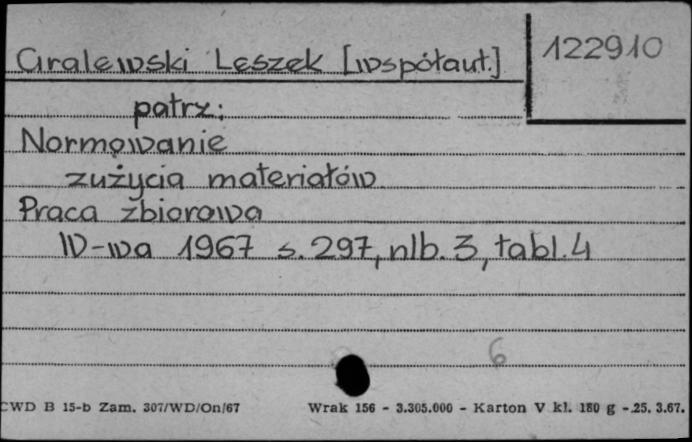 Gralewski Leszek [współaut.]
122910
patrz:
Normowanie
zużycia materiałów
Praca zbiorowa
W-wa 1967 s. 297, nlb. 3, tabl. 4
6
CWD B 15-b Zam. 307/WD/On/67
Wrak 156 - 3.305.000 - Karton V kl. 180 g - 25. 3.67.